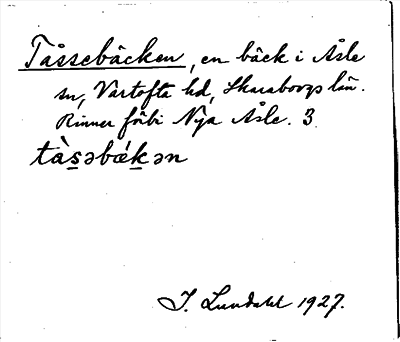 Tåssebäcken, en bäck i Åsle
sn, Vartofta hd, Skaraborgs län.
Rinner förbi Nya Åsle. 3.
tàs̲əbǽk̲ən
I. Lundahl 1927.